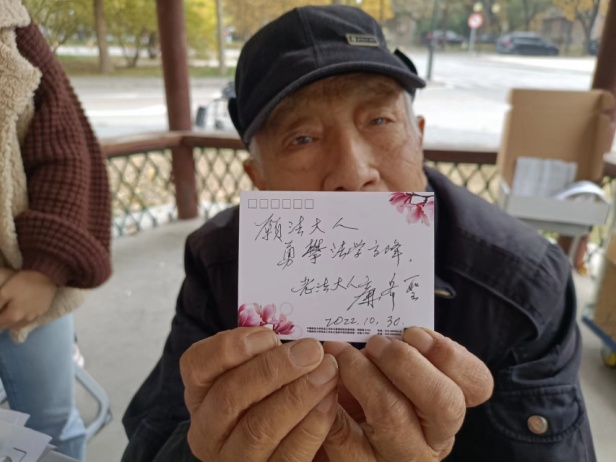 愿法大人
勇攀法学高峰.
老法大人
2022.10.30